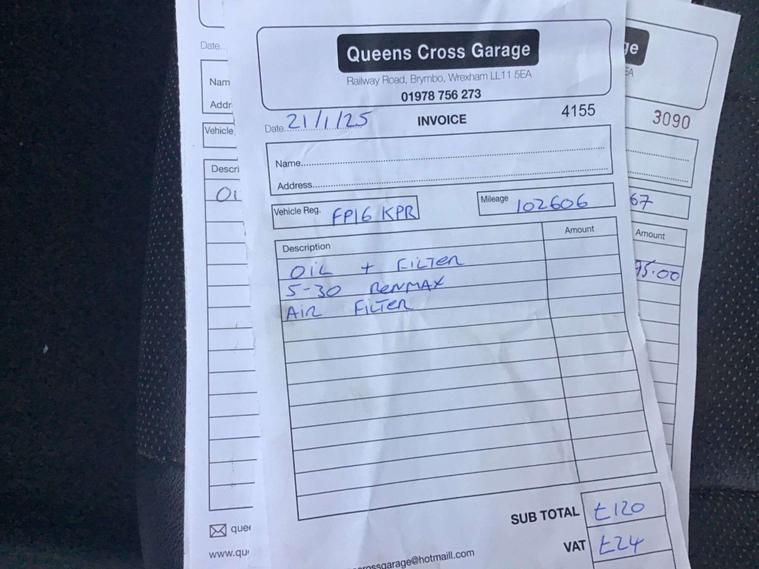 Queens Cross Garage
Railway Road, Brymbo, Wrexham LL11 5EA
01978 756 273
Date 21/1/25 INVOICE 4155
Name
Address
Vehicle Reg. FP16 KPR Mileage 102606
Description Amount
OIL + FILTER
5-30 RENMAX
AIR FILTER
SUB TOTAL £120
VAT £24
crossgarage@hotmaill.com
Date
Nam
Addr
Vehicle
Descri
OI
quee
www.qu
ge
EA
3090
67
Amount
95.00